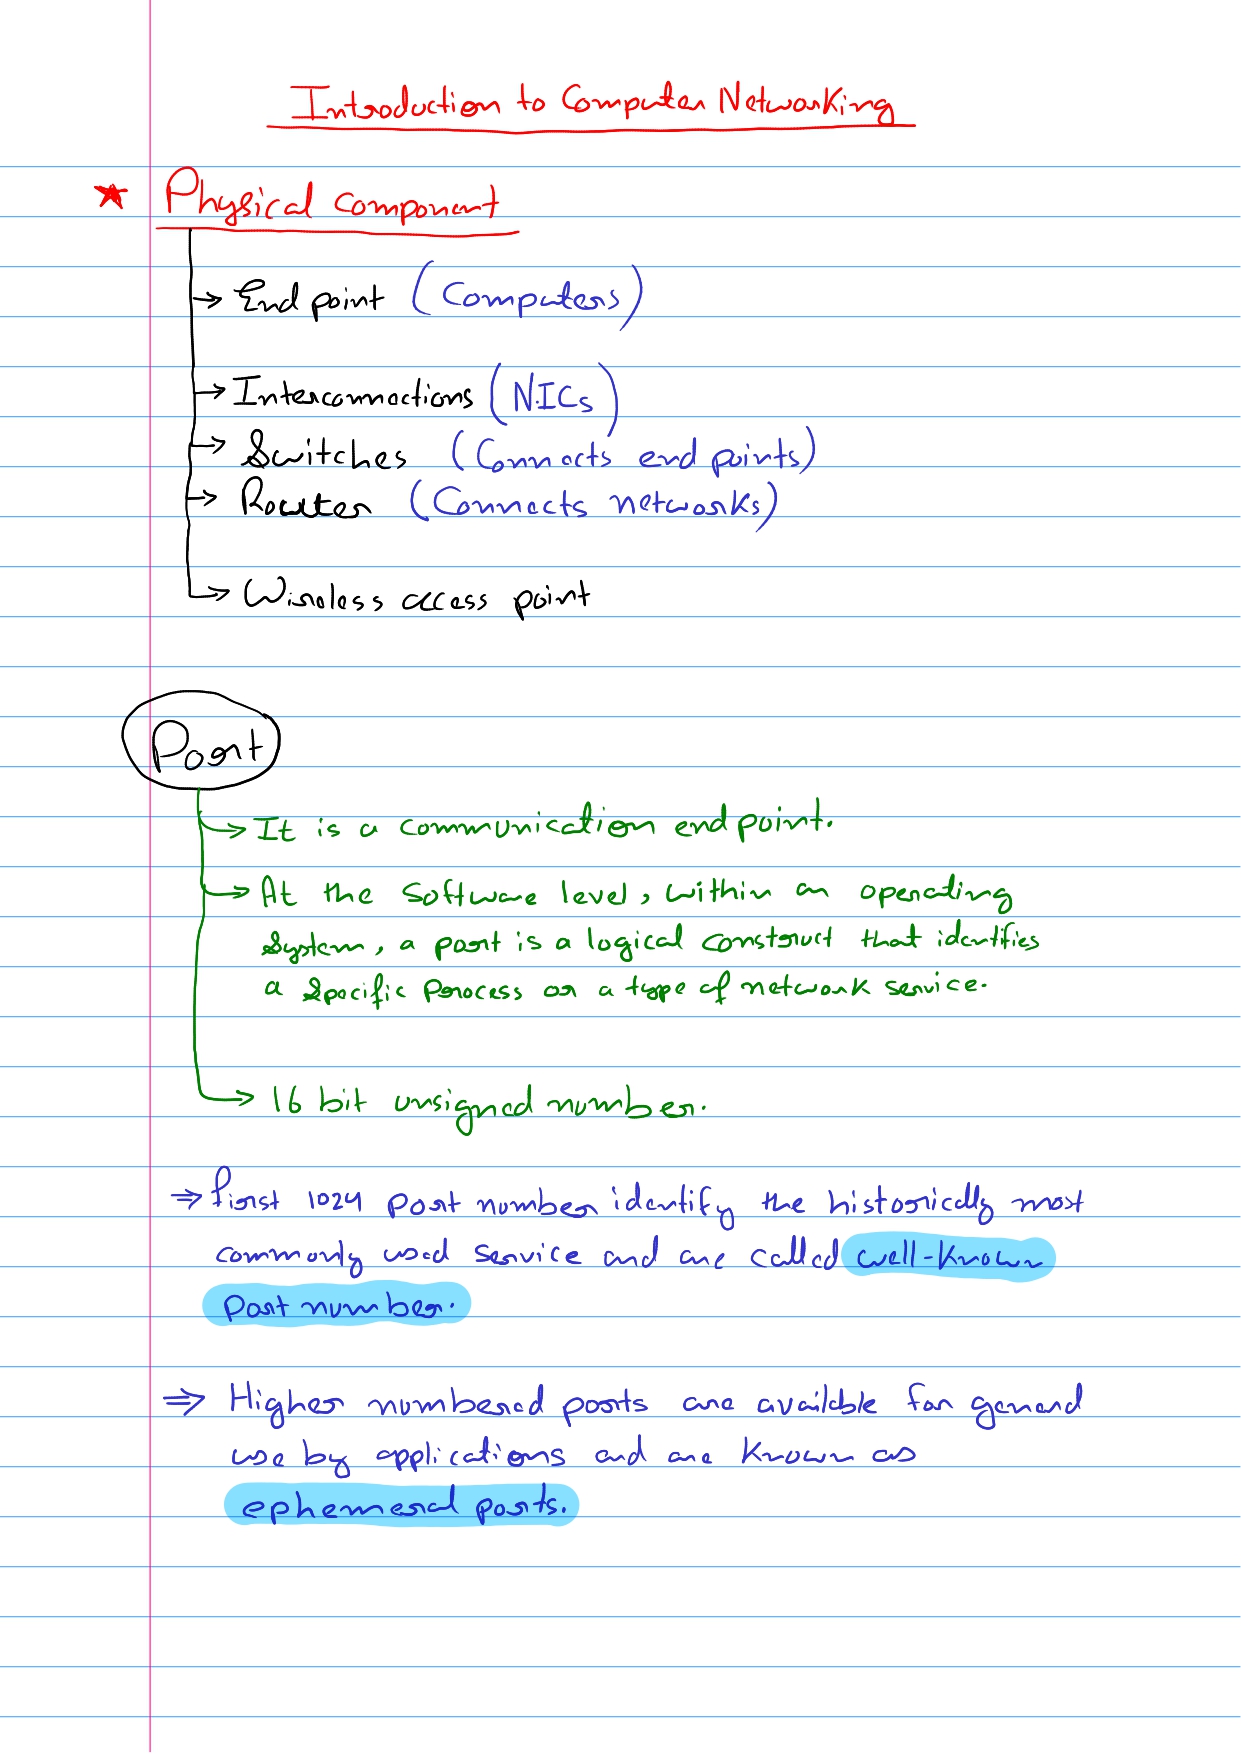 Introduction to Computer Networking
★ Physical component
→ End point (Computers)
→ Interconnections (NICs)
→ Switches (Connects end points)
→ Router (Connects networks)
→ Wireless access point
Port
→ It is a communication end point.
→ At the software level, within an operating
system, a port is a logical construct that identifies
a specific process or a type of network service.
→ 16 bit unsigned number.
⇒ first 1024 port number identify the historically most
commonly used service and are called well-known
port number.
⇒ Higher numbered ports are available for general
use by applications and are known as
ephemeral ports.